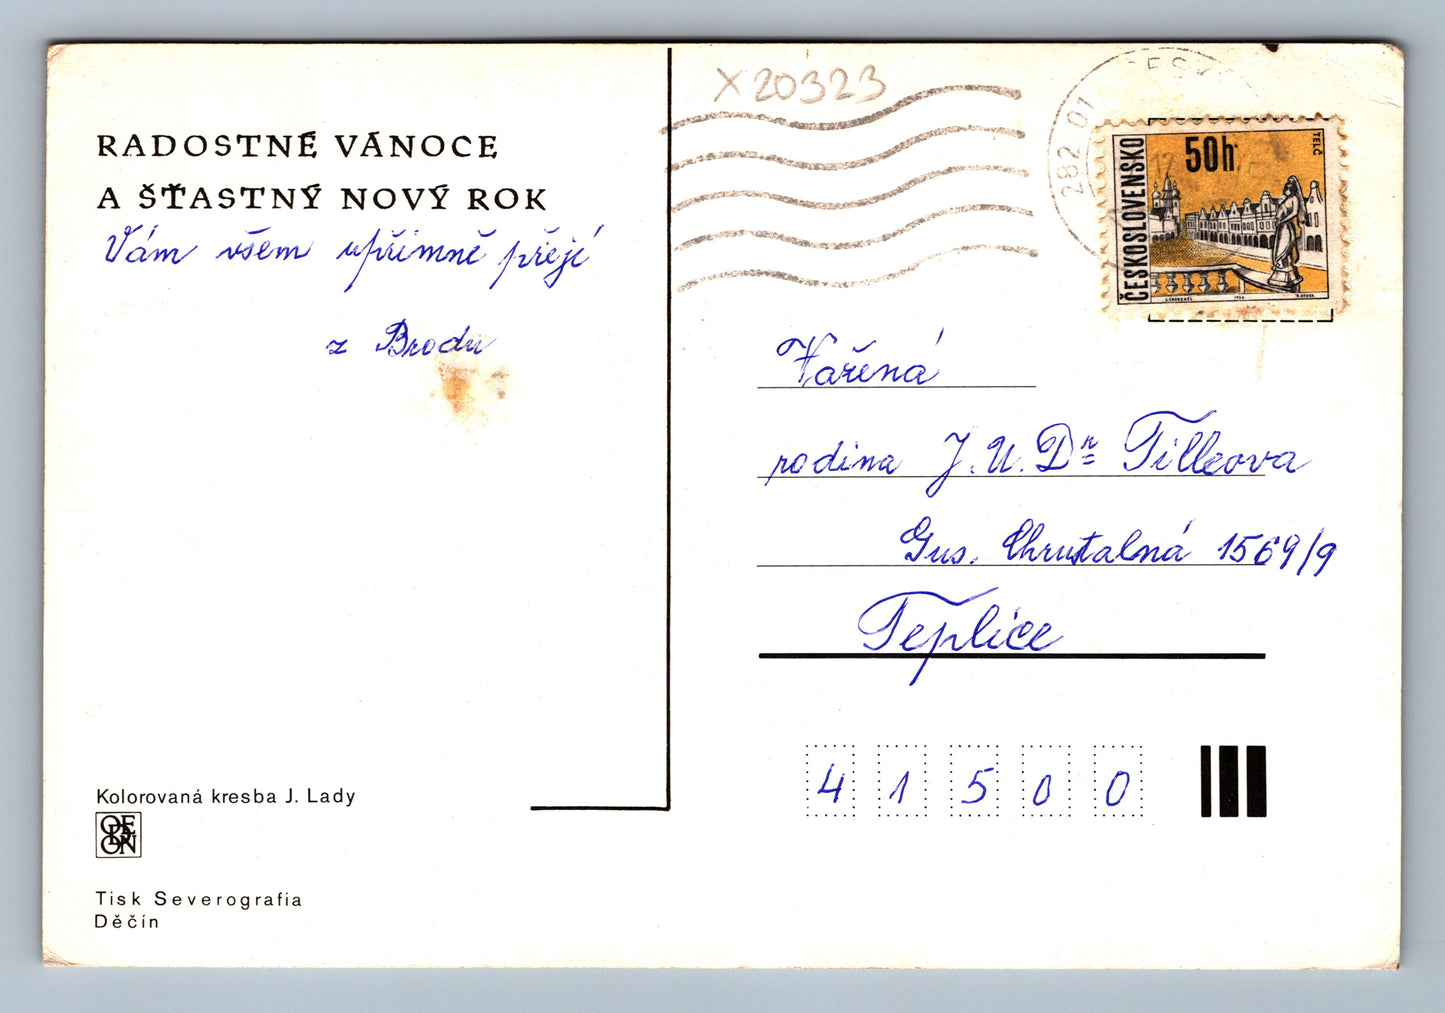 RADOSTNÉ VÁNOCE
A ŠŤASTNÝ NOVÝ ROK
Vám všem upřímně přejí
z Brodu
Kolorovaná kresba J. Lady
ODEON
Tisk Severografia
Děčín
X20323
282 01 ČESK
ČESKOSLOVENSKO
50h
TELČ
Vážená
rodina J.U.Dr Tilleova
Gus. Chrustalná 1569/9
Teplice
4 1 5 0 0